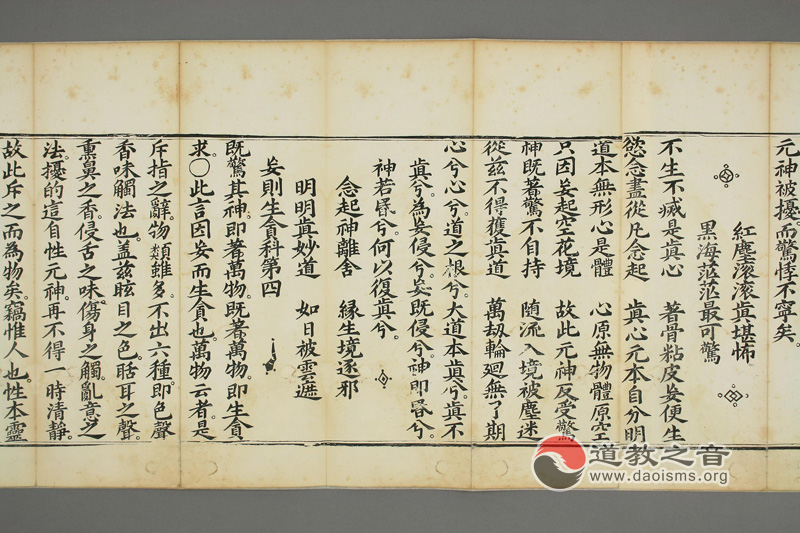 元神被擾。而驚悸不寧矣。
紅塵滾滾眞堪怖
黑海茫茫最可驚
不生不滅是眞心　著骨粘皮妄便生
慾念盡從凡念起　眞心元本自分明
道本無形心是體　心原無物體原空
只因妄起空花境　故此元神反受驚
神既著驚不自持　随流入境被塵迷
從兹不得獲眞道　萬劫輪廻無了期
心兮心兮。道之根兮。大道本眞兮。眞不
眞兮。為妄侵兮。妄既侵兮。神即昏兮。
神若昬兮。何以復眞兮。
念起神離舍　緣生境逐邪
明明眞妙道　如日被雲遮
妄則生貪科第四
既驚其神。即著萬物。既著萬物。即生貪
求。○此言因妄而生貪也。萬物云者。是
斥指之辭。物類雖多。不出六種。即色聲
香味觸法也。盖兹眩目之色。聒耳之聲。
熏鼻之香。侵舌之味。傷身之觸。亂意之
法。擾的這自性元神。再不得一時清靜。
故此斥之而為物矣。竊惟人也。性本靈
道教之音
www.daoisms.org